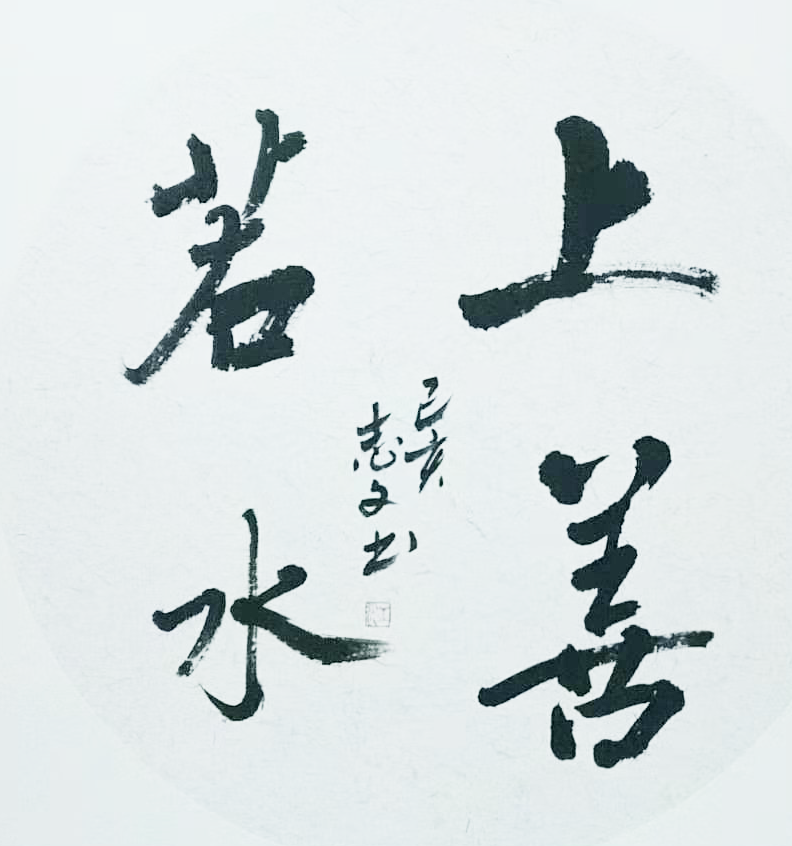 上善
若水
己亥
志文书